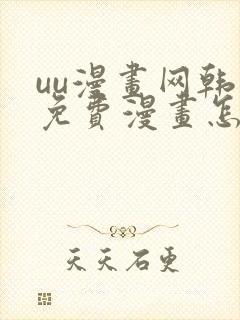 uu漫畫网韩
免費漫畫怎
天天石更